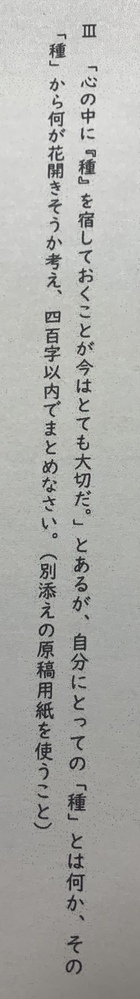 Ⅲ 「心の中に『種』を宿しておくことが今はとても大切だ。」とあるが、自分にとっての「種」とは何か、その
「種」から何が花開きそうか考え、四百字以内でまとめなさい。(別添えの原稿用紙を使うこと)